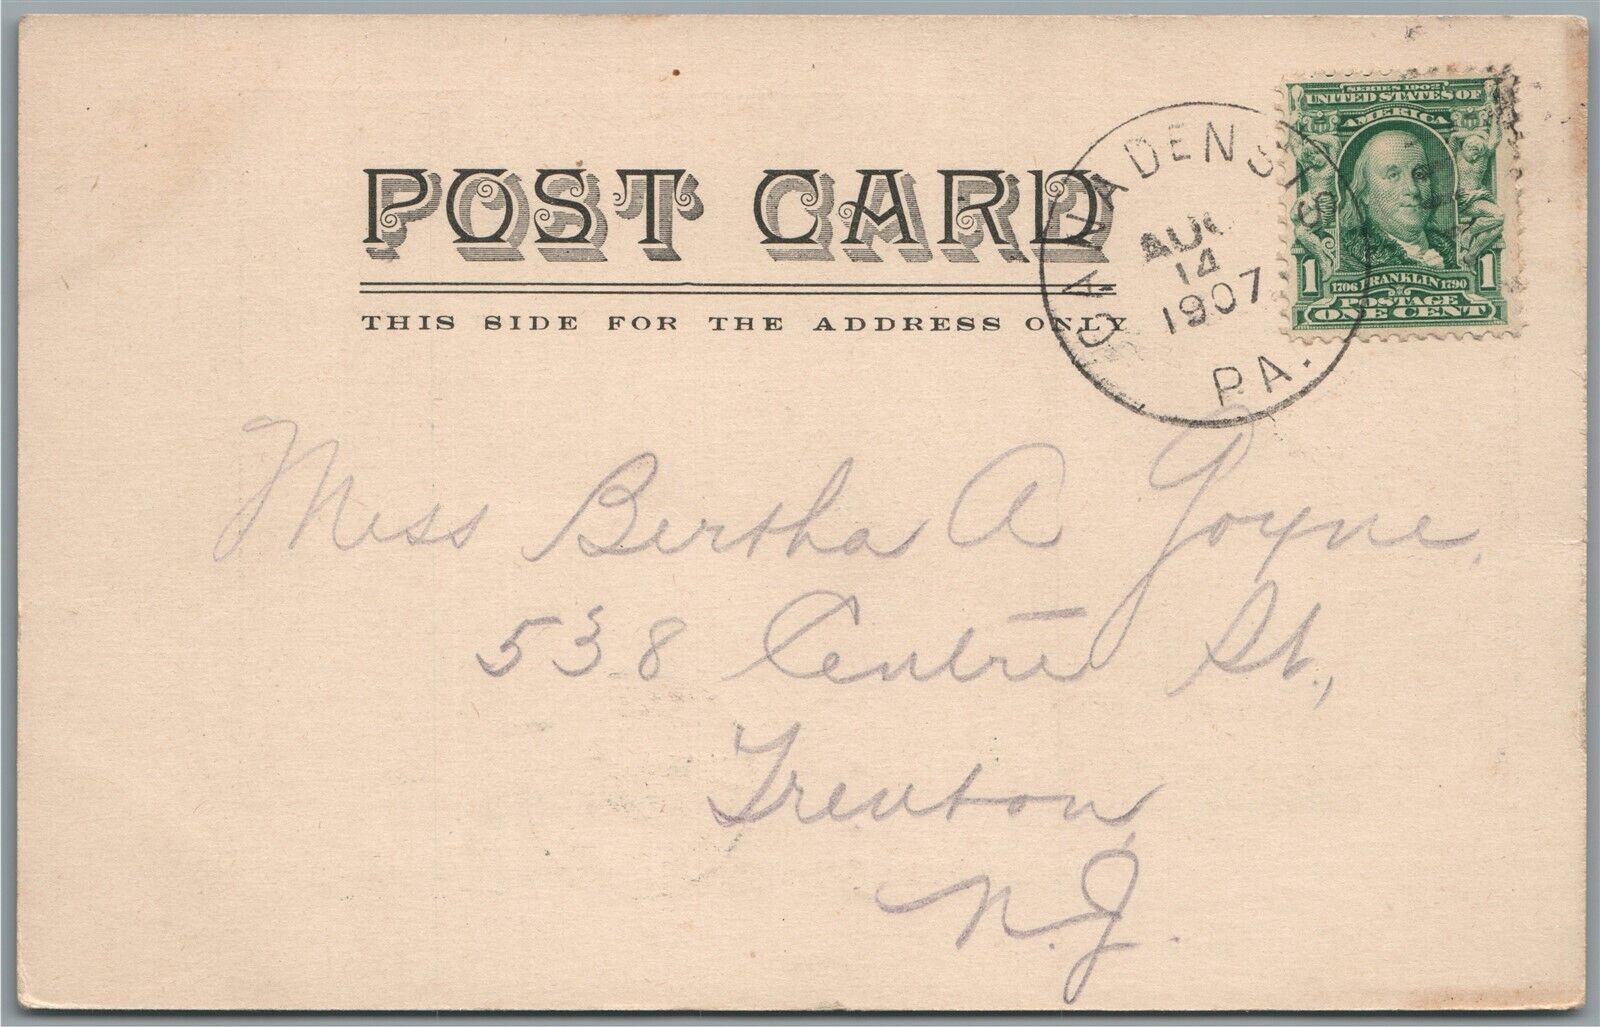 POST CARD
THIS SIDE FOR THE ADDRESS ONLY
CANADENSIS
AUG
14
1907
PA.
SERIES 1902
UNITED STATES OF
AMERICA
1706 FRANKLIN 1790
1 1
POSTAGE
ONE CENT
Miss Bertha A Goyne,
538 Centre St.,
Trenton,
N.J.